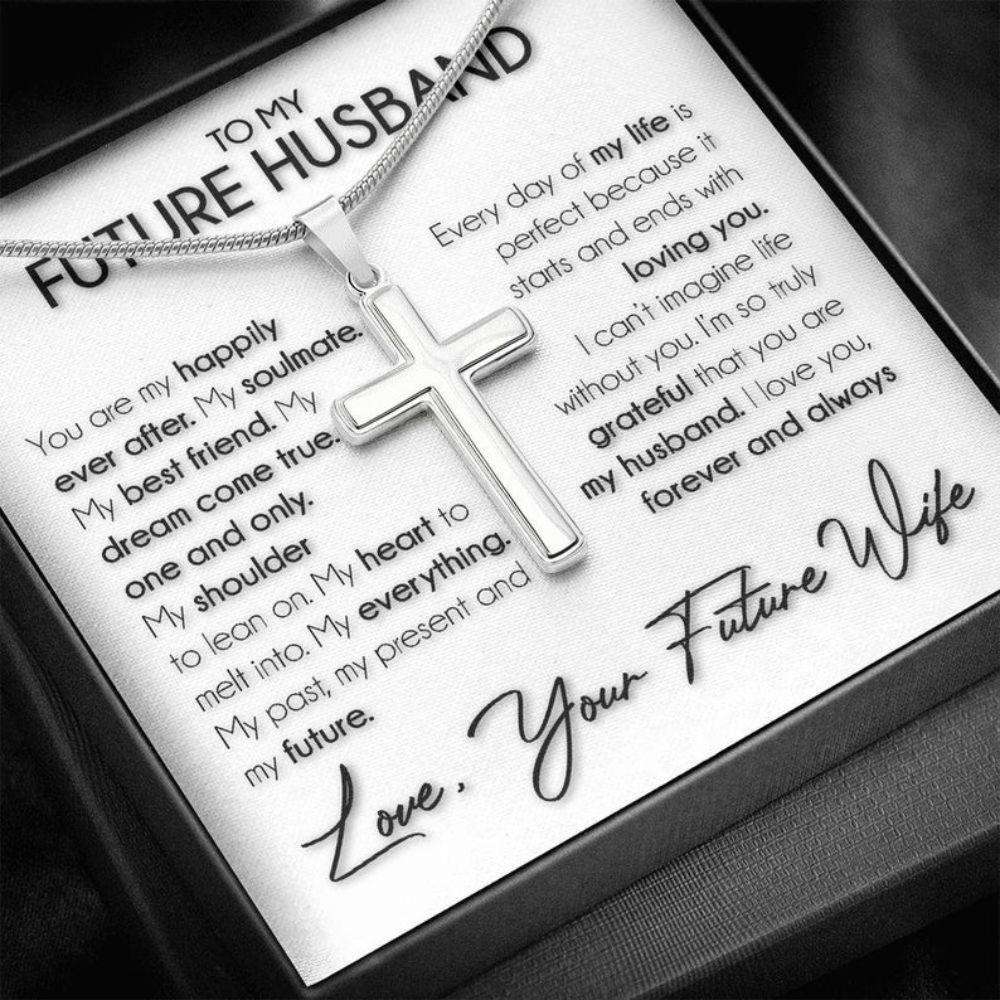 TO MY
FUTURE HUSBAND
You are my happily
ever after. My soulmate.
My best friend. My
dream come true.
one and only.
My shoulder
to lean on. My heart to
melt into. My everything.
My past, my present and
my future.
Every day of my life is
perfect because it
starts and ends with
loving you.
I can't imagine life
without you. I'm so truly
grateful that you are
my husband. I love you,
forever and always
Love, Your Future Wife